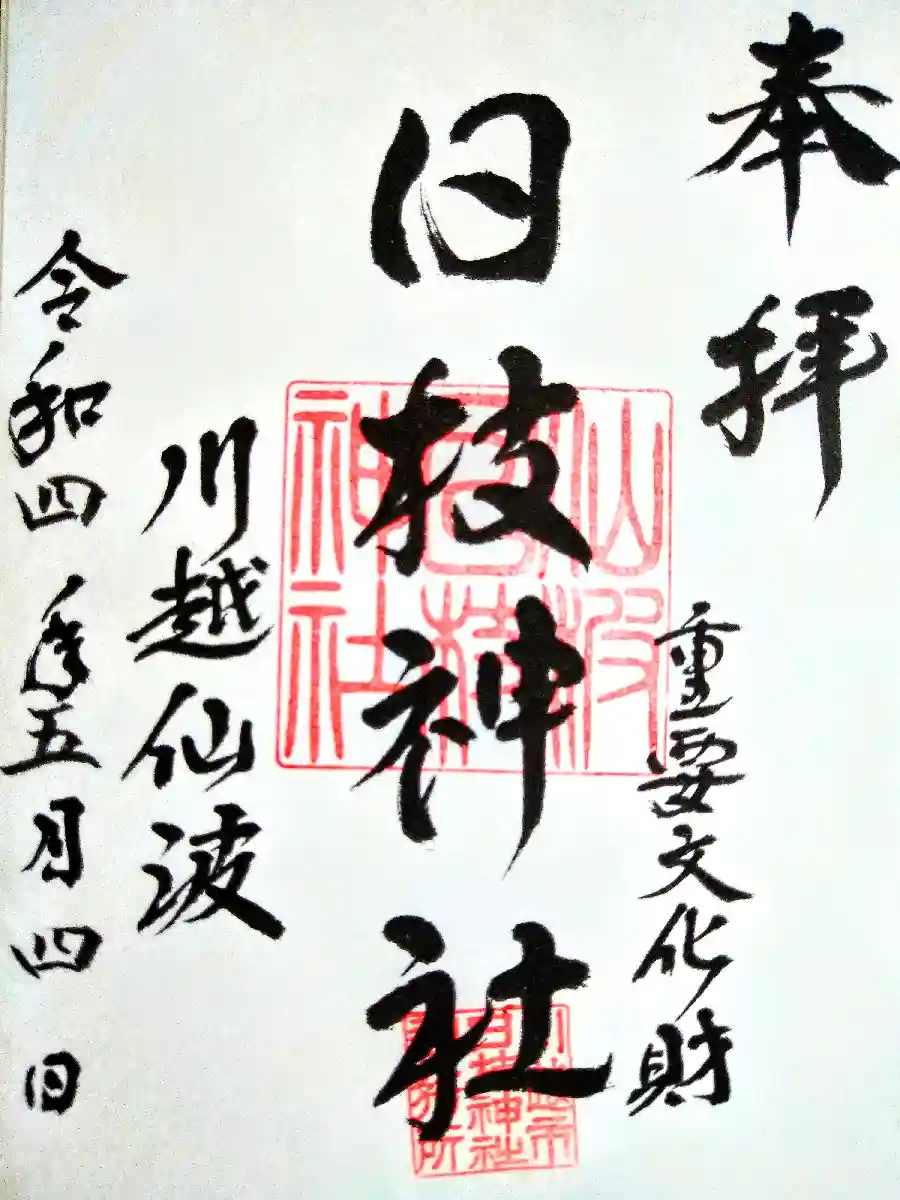 奉拝
重要文化財
日枝神社
仙波
日枝
神社
川越市
日枝神社
社務所
川越仙波
令和四年五月四日